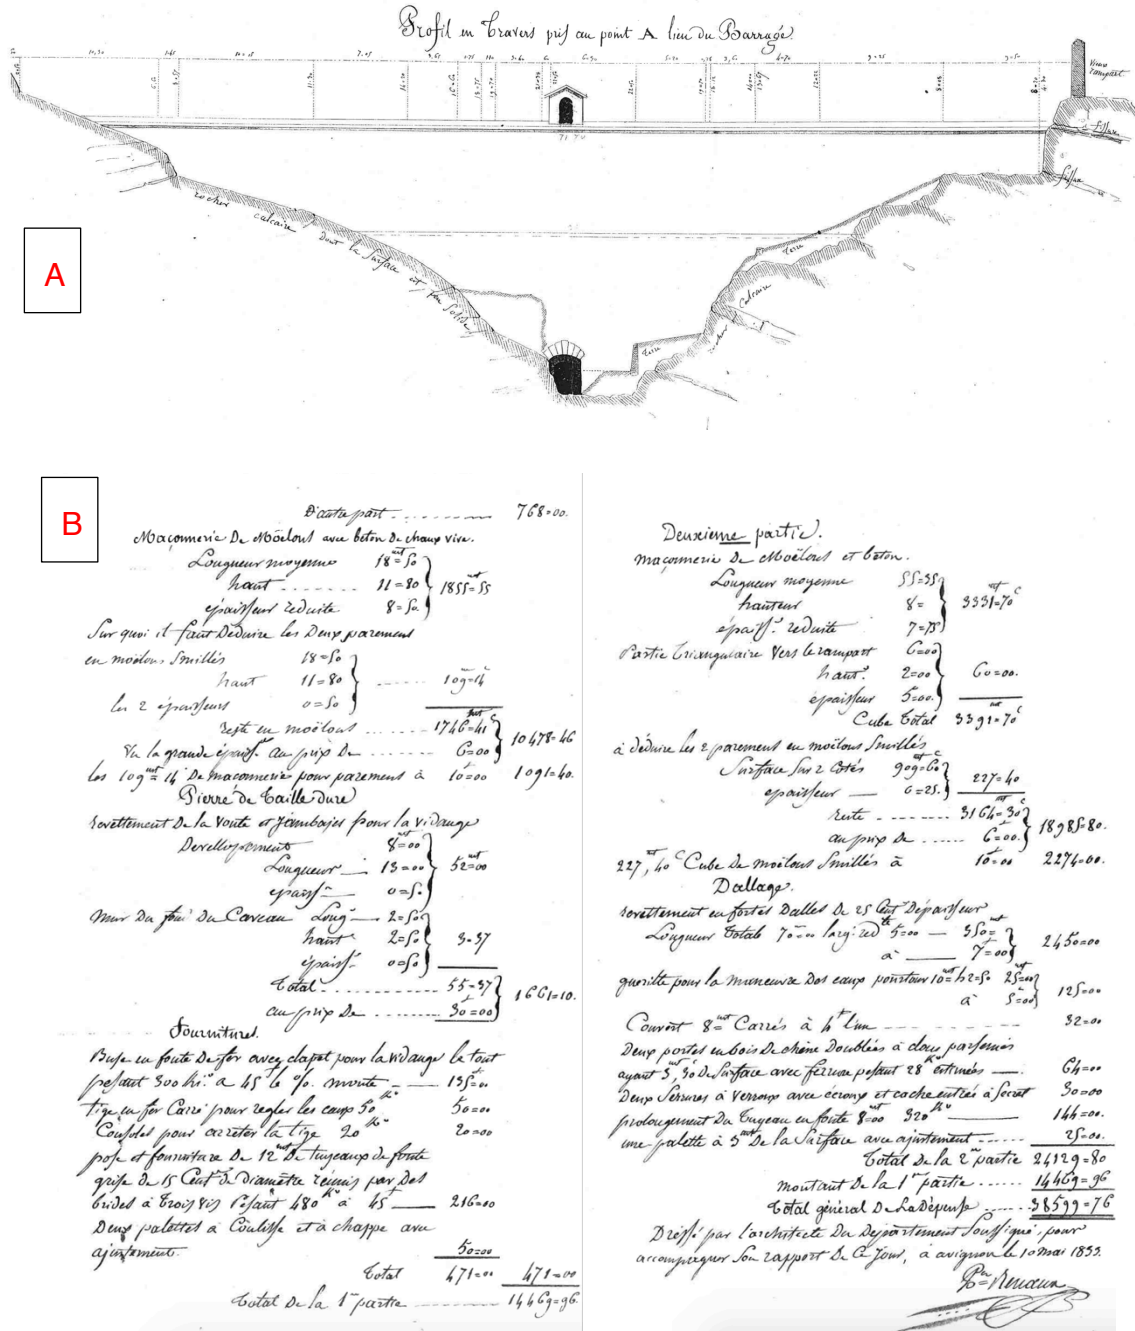 Profil en Travers pris au point A lieu du Barrage.
Vieux
rempart
71=70
fissure
fissure
rocher calcaire dont la surface est peu solide
Terre
Terre
rocher calcaire
A
B
D'autre part 768=00.
Maçonnerie De Moëlons avec béton de chaux vive.
Longueur moyenne 18=50
haut 11=80 1855=55
épaisseur réduite 8=50.
Sur quoi il faut Déduire les Deux parement
en moëlons Smillés 18=50
haut 11=80 109=14
les 2 épaisseurs 0=50
reste en moëlons 1746=41
Vu la grande épaiss. au prix De 6=00 10478=46
les 109 14 De maçonnerie pour parement à 10=00 1091=40.
Pierre de Taille dure
revettement De la Voute et jambages pour la vidange
Devellopement 8=00
Longueur 13=00 52=00
épaiss. 0=50
Mur Du fond Du Caveau Long. 2=50
haut 2=50 3=37
épaiss. 0=50
Total 55=37
au prix De 30=00 1661=10.
Fournitures.
Buse en fonte De fer avec clapet pour la vidange le tout
pesant 300 Ki. a 45 le %. monte 135=00
tige en fer Carré pour regler les eaux 50 Ko 50=00
Consoles pour arreter la tige 20 Ko 20=00
pose et fourniture De 12 De tuyeaux de fonte
grise de 15 Cent. De Diamètre réunis par Des
brides à Trois vis Pesant 480 Ko à 45 216=00
Deux palettes à Coulisse et à chappe avec
ajustement. 50=00
Total 471=00 471=00
Total De la 1 partie 14469=96.
Deuxieme partie.
maçonnerie De Moëlons et béton.
Longueur moyenne 55=35
hauteur 8= 3331=70
épaiss. réduite 7=75
Partie Triangulaire Vers le rampart 6=00
haut. 2=00 60=00.
épaisseur 5=00.
Cube Total 3391=70
à déduire les 2 parement en moëlons Smillés
Surface Sur 2 Cotés 909=60
épaisseur 0=25. 227=40
reste 3164=30
au prix De 6=00. 18985=80.
227, 40 Cube De moëlons Smillés à 10=00 2274=00.
Dallage.
revettement en fortes Dalles De 25 Cent D'épaisseur
Longueur Totale 70=00 larg. red 5=00 350=
à 7=00 2450=00
gueritte pour la manœuvre Des eaux pourtour 10= h 2=50 25=00
à 5=00 125=00
Couvert 8= Carrés à 4 l'un 32=00
Deux portes en bois De chêne Doublées à clous parsemés
ayant 3, 30 De Surface avec ferrure pesant 28 Ko estimées 64=00
Deux Serrures à Verroux avec écroux et cache entrée à Secret 30=00
prolongement Du Tuyeau en fonte 8=00 320 Ko 144=00.
une palette à 3 De la Surface avec ajustement 25=00.
Total De la 2 partie 24129=80
montant De la 1 partie 14469=96
Total géneral De La Dépense 38599=76
Dressé par l'architecte Du Département Soussigné, pour
accompagner Son rapport De Ce Jour, à avignon le 10 mai 1833.
Renaux